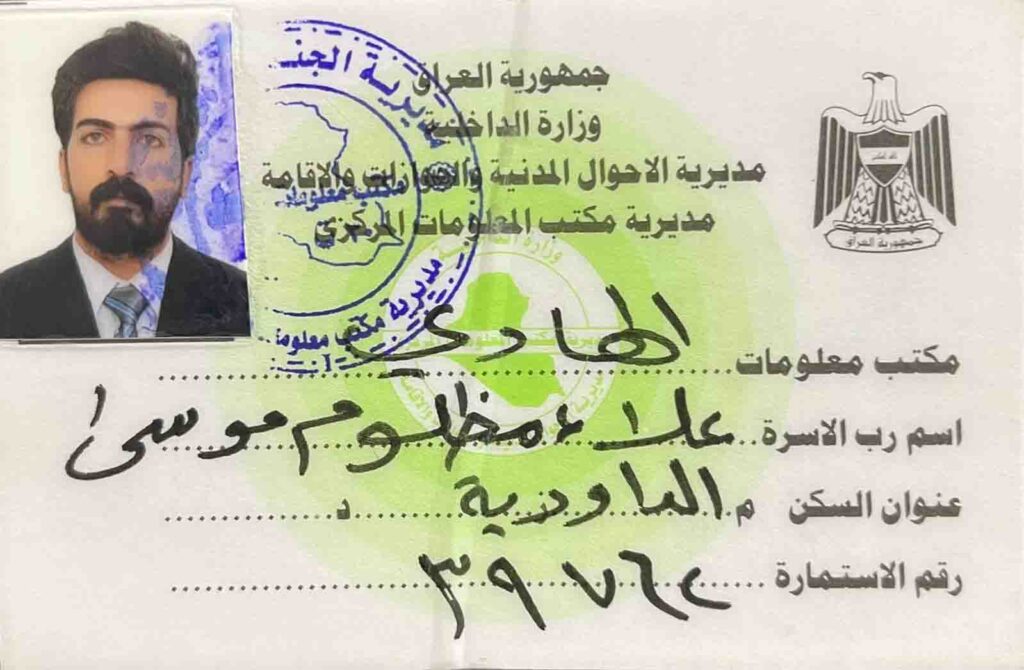 جمهورية العراق
وزارة الداخلية
مديرية الاحوال المدنية والجوازات والاقامة
مديرية مكتب المعلومات المركزي
جمهورية العراق
مكتب معلومات الهادي
اسم رب الاسرة علاء مظلوم موسى
عنوان السكن م الداودية د
رقم الاستمارة ٣٩٧٦٤
مديرية الجنـ
مكتب معلومات
مديرية مكتب معلوما